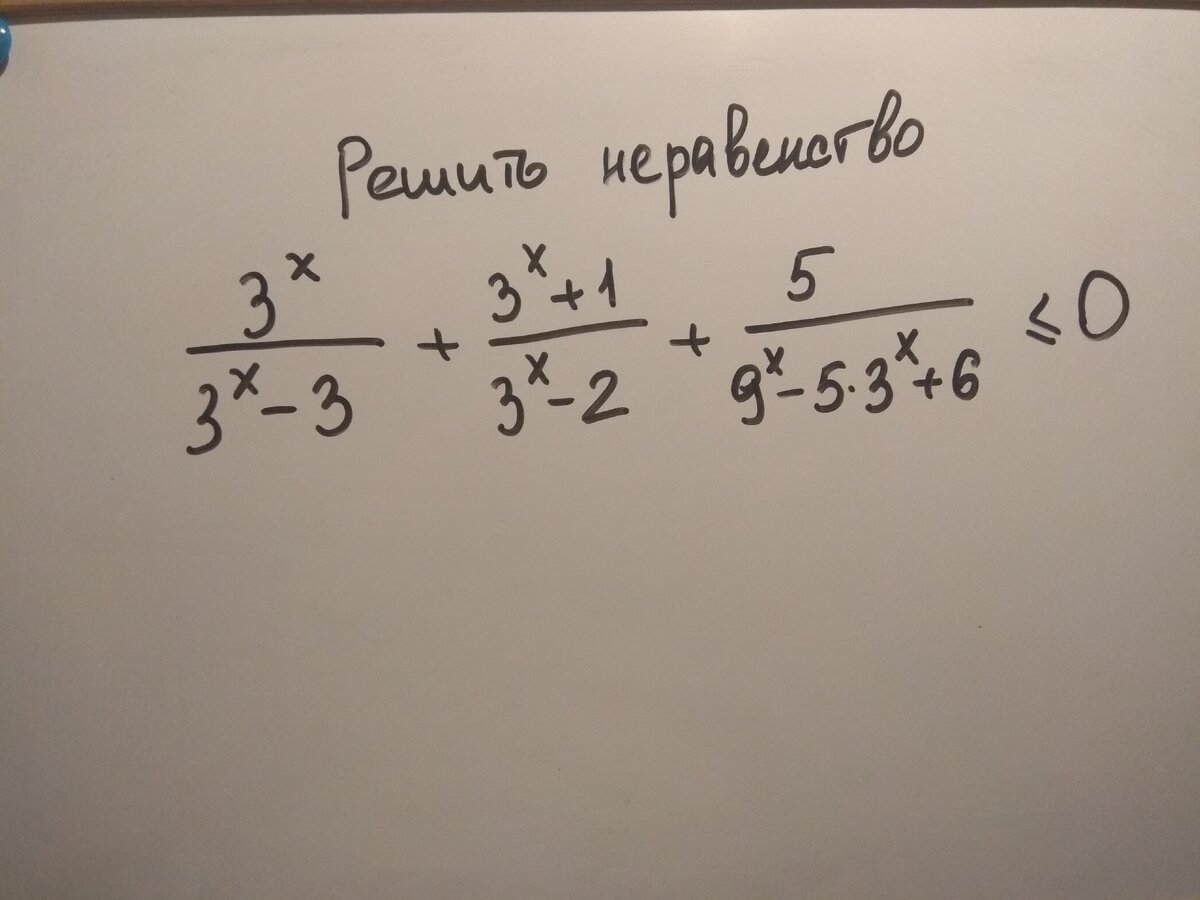 Решить неравенство
3^x/(3^x-3) + (3^x+1)/(3^x-2) + 5/(9^x-5·3^x+6) ≤ 0